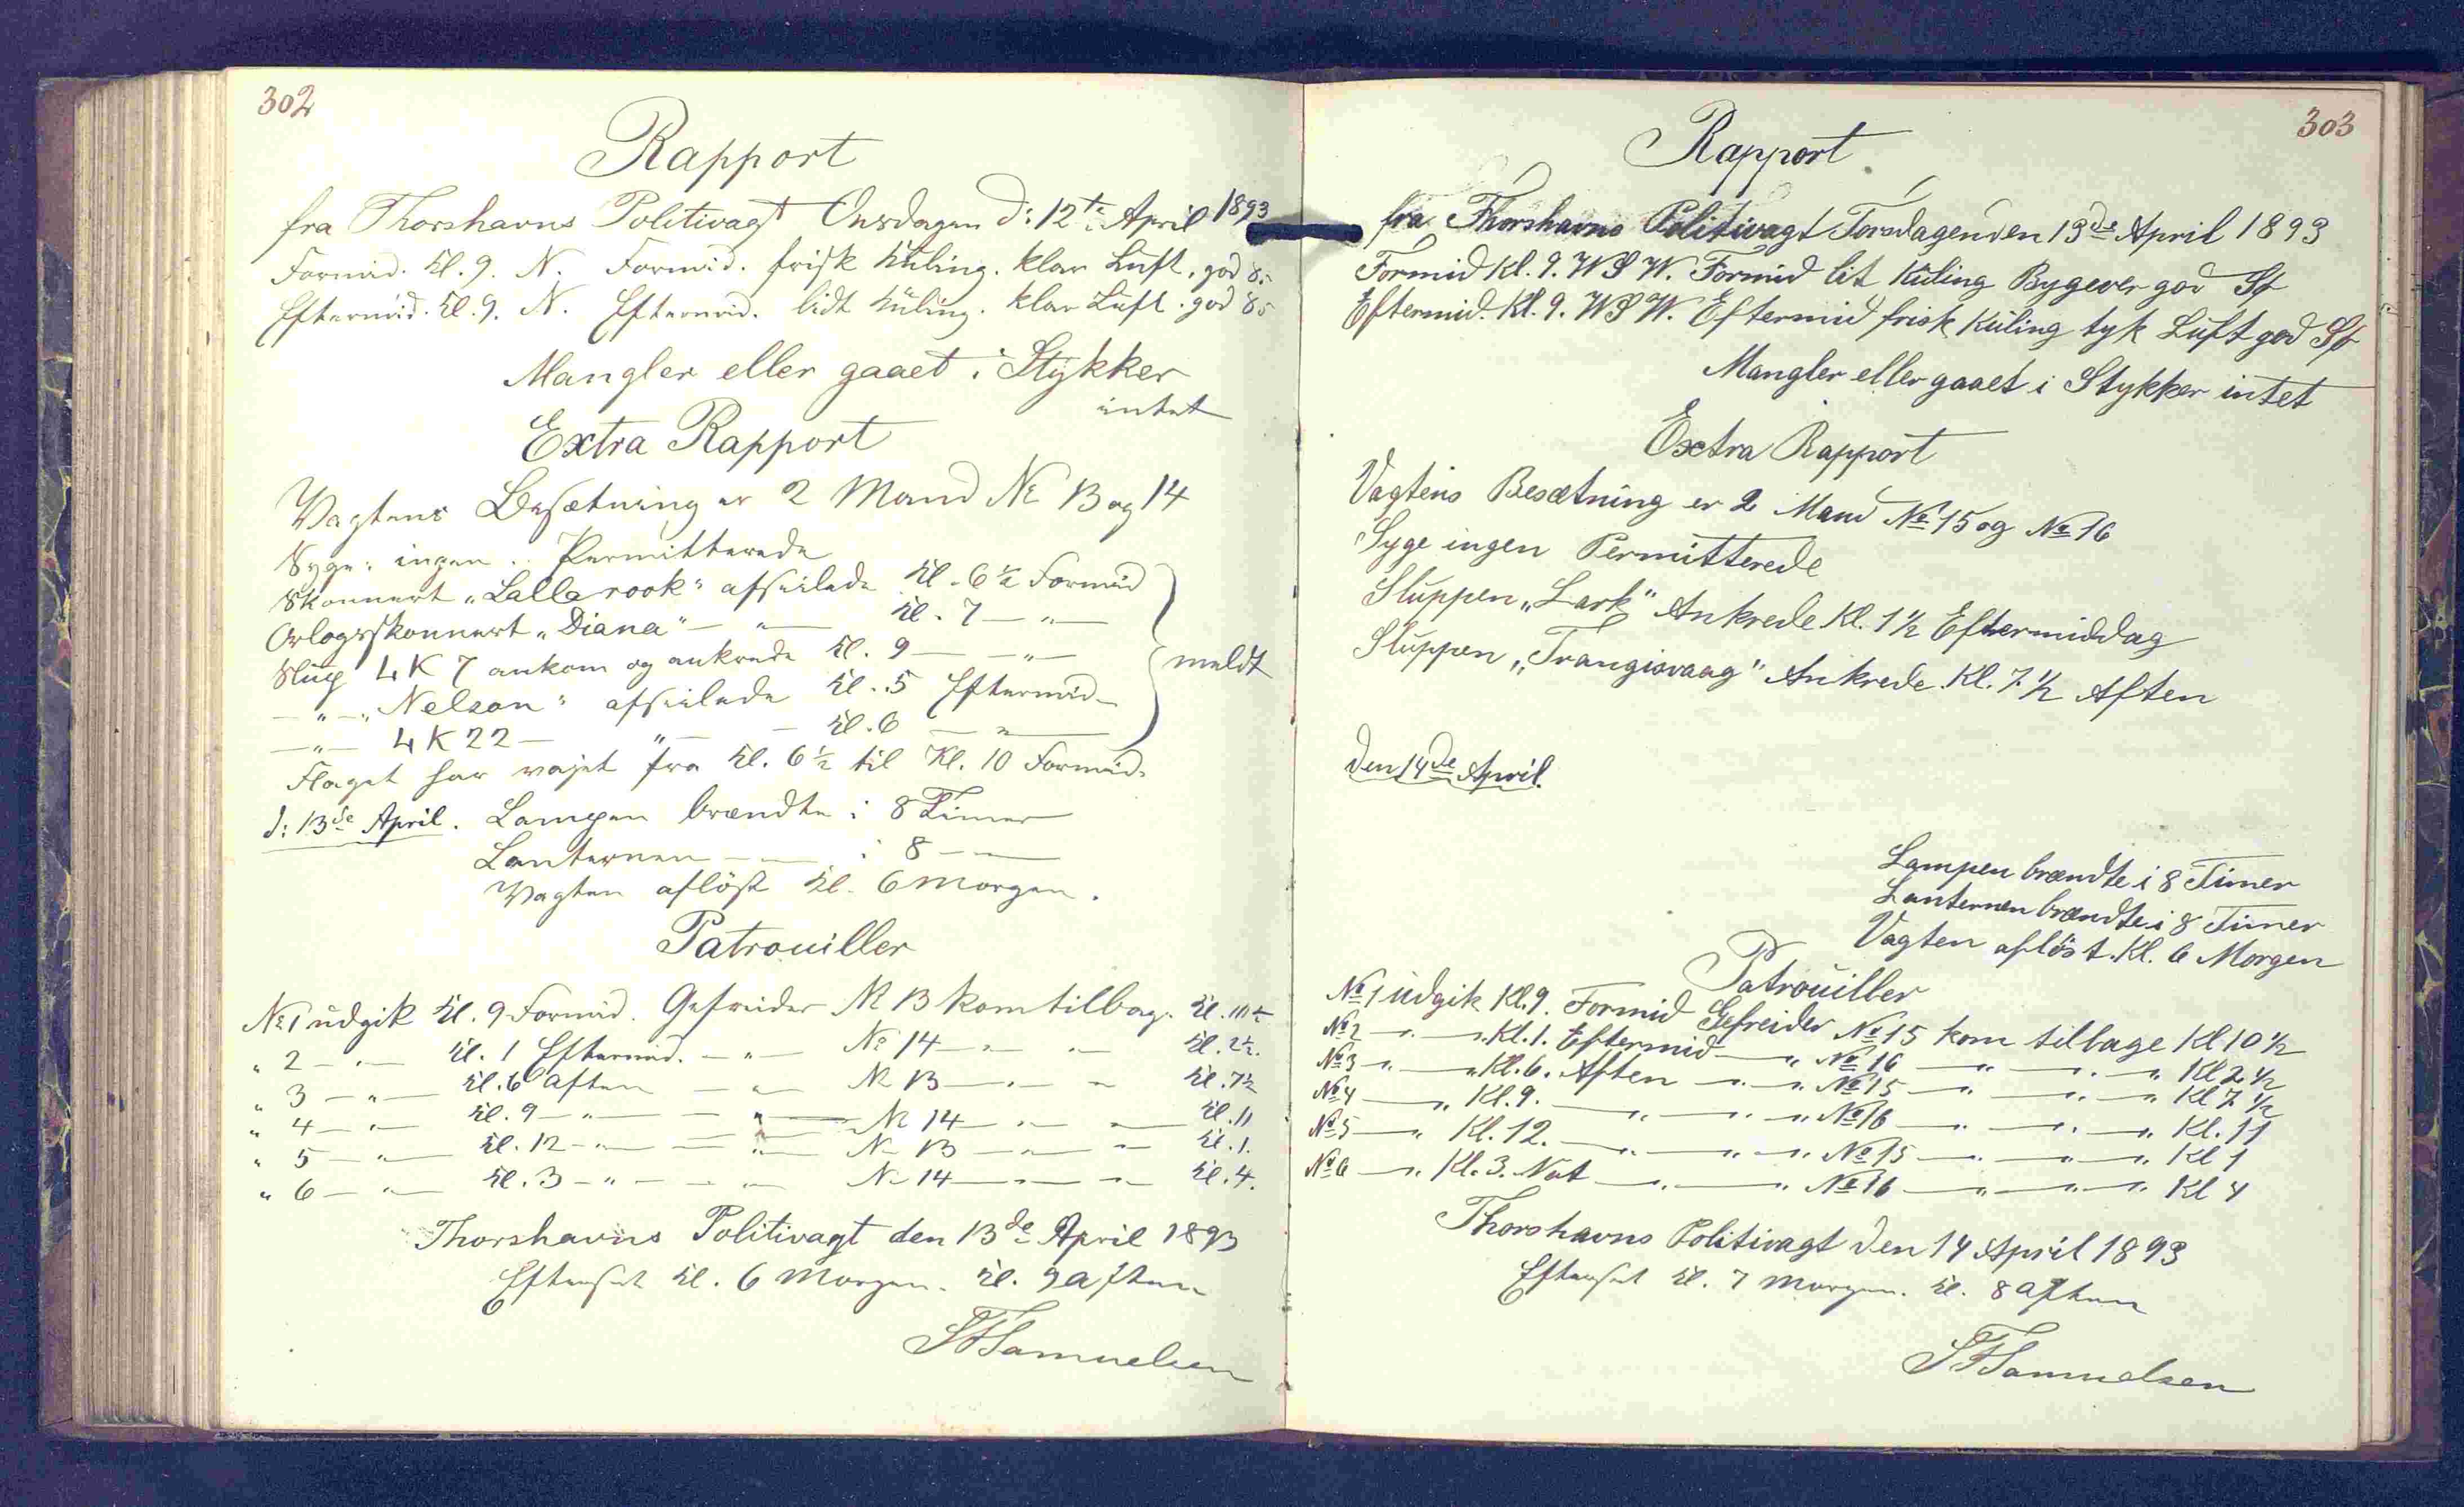 302
Rapport
fra Thorshavns Politivagt Onsdagen d: 12te April 1893
Formid. Kl. 9. N. Formid. frisk Kuling. klar Luft, god Sö
Eftermid. Kl. 9. N. Eftermid. lidt Kuling. klar Luft. god Sö
Mangler eller gaaet i Stykker
intet
Extra Rapport
Vagtens Besætning er 2 Mand No 13 og 14
Syge: ingen .. Permitterede
Skonnert „Lalla rook" afseilede Kl. 6½ Formid
Orlogsskonnert „Diana" — „ — Kl. 7 — „ —
Slup 4 K 7 ankom og ankrede Kl. 9 — „ —
— „ — „Nelson" afseilede Kl. 5 Eftermid. meldt
— „ — 4 K 22 — „ — Kl. 6 — „ —
Flaget har vajet fra Kl. 6½ til Kl. 10 Formid.
d: 13de April. Lampen brændte i 8 Timer
Lanternen — — i 8 — „ —
Vagten aflöst Kl. 6 Morgen.
Patrouiller
No 1 udgik Kl. 9 Formid. Gefreider No 13 kom tilbag. Kl. 10½
„ 2 — „ — Kl. 1 Eftermid. — „ — No 14 — „ — „ — Kl. 2½.
„ 3 — „ — Kl. 6 Aften — „ — No 13 — „ — „ — Kl. 7½
„ 4 — „ — Kl. 9 — „ — — „ — No 14 — „ — „ — Kl. 11
„ 5 — „ — Kl. 12 — „ — — „ — No 13 — „ — „ — Kl. 1.
„ 6 — „ — Kl. 3 — „ — — „ — No 14 — „ — „ — Kl. 4.
Thorshavns Politivagt den 13de April 1893
Efterset Kl. 6 Morgen. Kl. 9 Aften
SFSamuelsen
303
Rapport
fra Thorshavns Politivagt Torsdagen den 13de April 1893
Formid Kl. 9. W S W. Formid lit Kuling Bygever god Sø
Eftermid. Kl. 9. W S W. Eftermid frisk Kuling tyk Luft god Sø
Mangler eller gaaet i Stykker intet
Extra Rapport
Vagtens Besætning er 2 Mand No 15 og No 16
Syge ingen Permitterede
Sluppen „Lark" Ankrede Kl. 1½ Eftermiddag
Sluppen „Trangisvaag" Ankrede Kl. 7½ Aften
Den 14de April.
Lampen brændte i 8 Timer
Lanternen brændte i 8 Timer
Vagten aflöst. Kl. 6 Morgen
Patrouiller
No 1 udgik Kl. 9. Formid Gefreider No 15 kom tilbage Kl 10½
No 2 — „ — „ Kl. 1. Eftermid — „ No 16 — „ — „ — „ Kl 2½
No 3 — „ — „ Kl. 6. Aften — „ — „ No 15 — „ — „ — „ Kl 7½
No 4 — „ Kl. 9. — „ — „ — „ No 16 — „ — „ — „ Kl. 11
No 5 — „ Kl. 12. — „ — „ — „ No 15 — „ — „ — „ Kl 1
No 6 — „ Kl. 3. Nat — „ — „ No 16 — „ — „ — „ Kl 4
Thorshavns Politivagt Den 14 April 1893
Efterset Kl. 7 Morgen. Kl. 8 Aften
SFSamuelsen